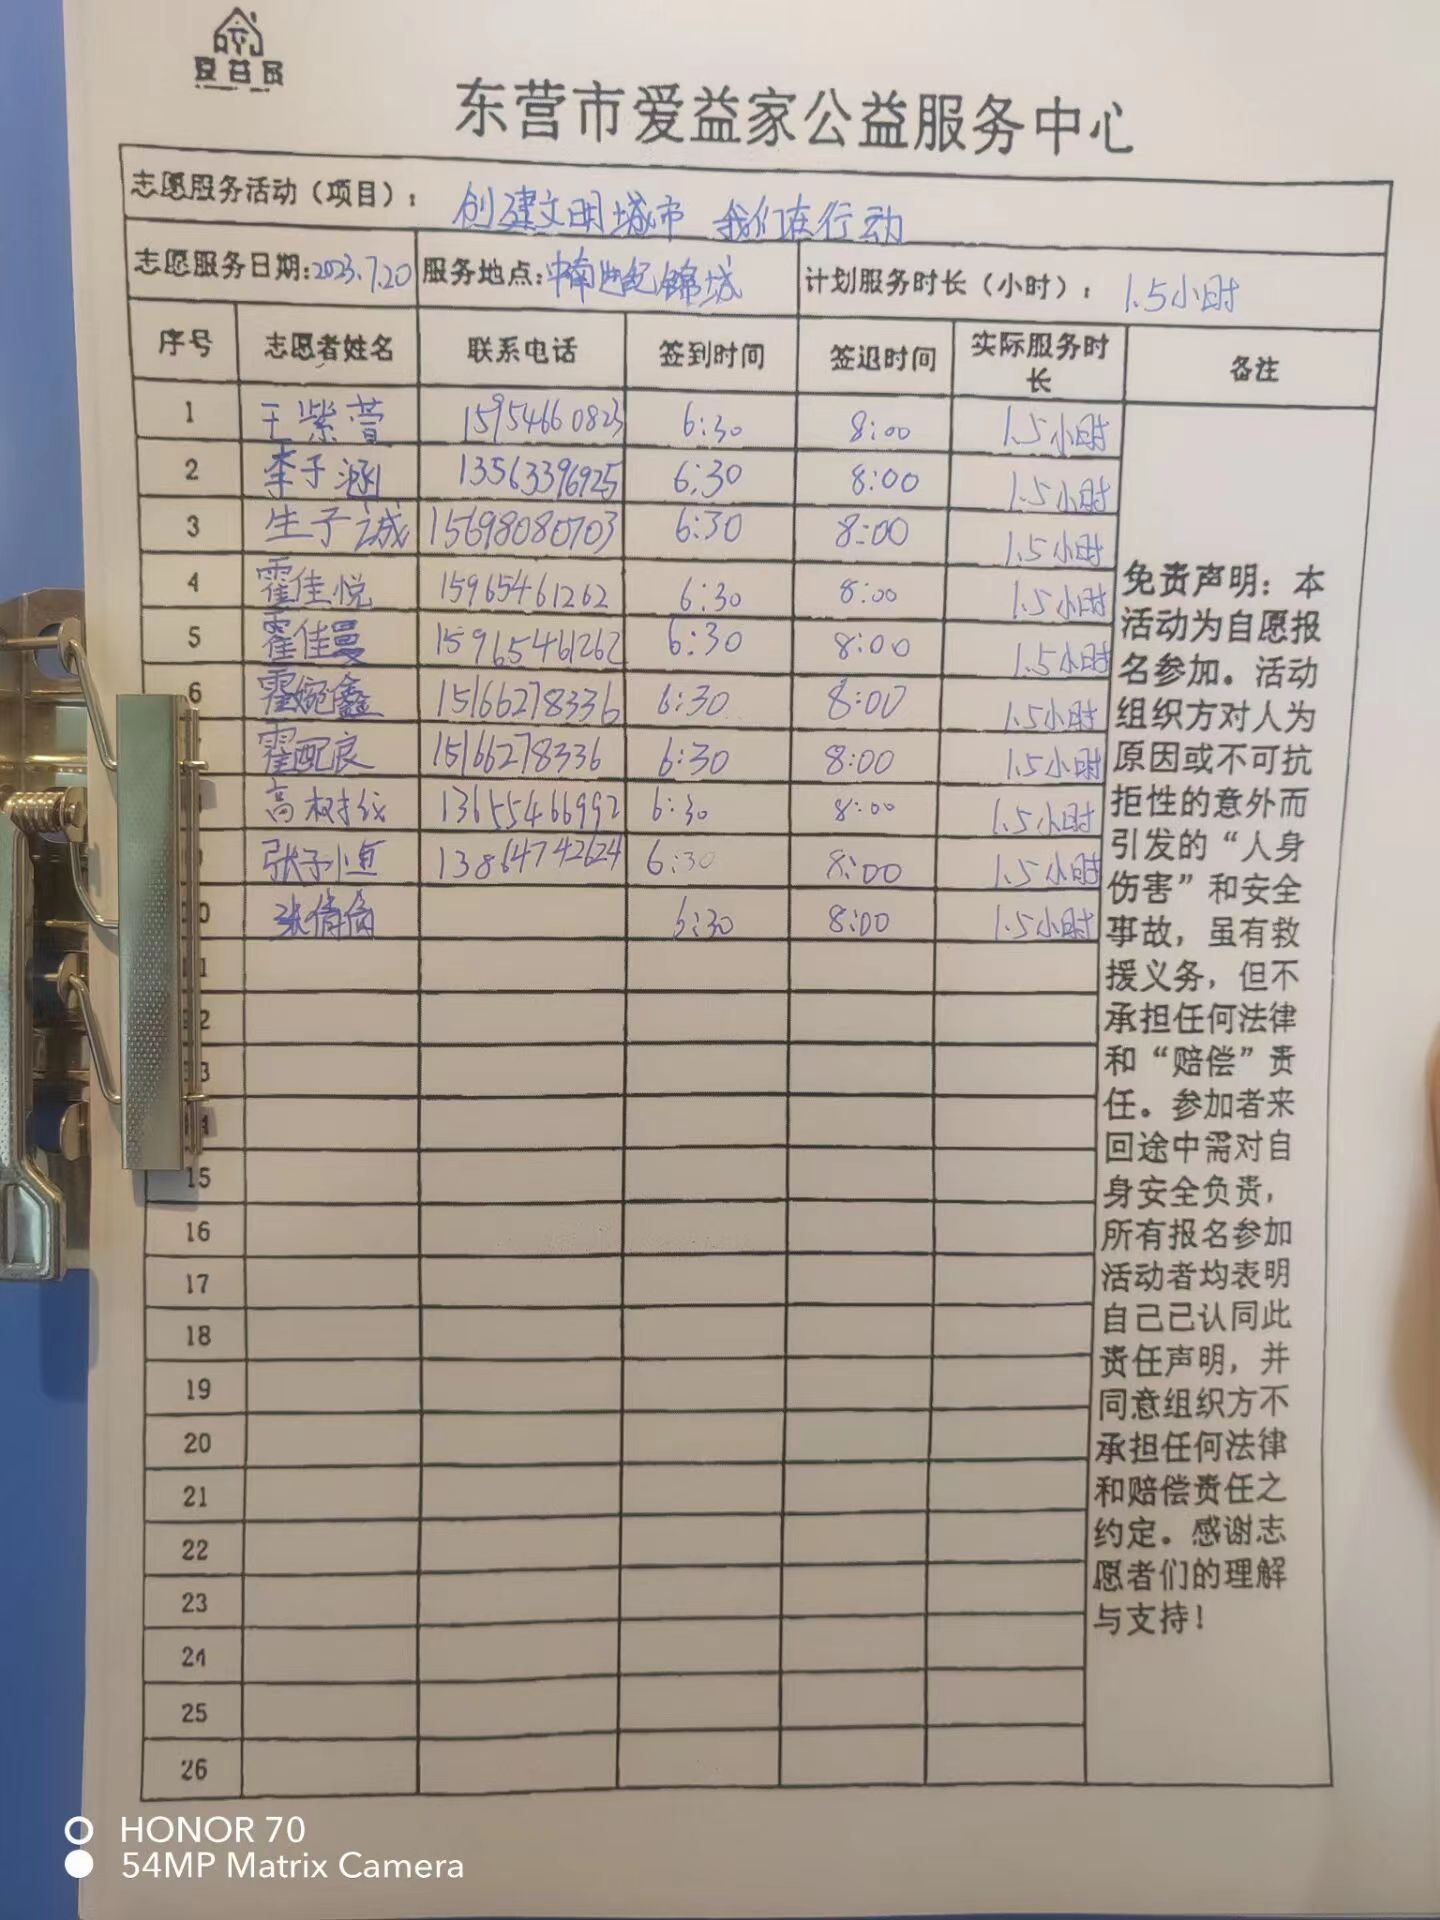 爱益家
东营市爱益家公益服务中心
志愿服务活动（项目）： 创建文明城市 我们在行动
志愿服务日期:2023.7.20 服务地点:中南世纪锦城 计划服务时长（小时）： 1.5小时
序号 志愿者姓名 联系电话 签到时间 签退时间 实际服务时长 备注
1 王紫萱 15954660823 6:30 8:00 1.5小时
2 李子涵 13563396925 6:30 8:00 1.5小时
3 生子诚 15698080703 6:30 8:00 1.5小时
4 霍佳悦 15965461262 6:30 8:00 1.5小时
5 霍佳曼 15965461262 6:30 8:00 1.5小时
6 霍婉鑫 15166278336 6:30 8:00 1.5小时
霍配良 15166278336 6:30 8:00 1.5小时
高树 13655466992 6:30 8:00 1.5小时
张子恒 13864742624 6:30 8:00 1.5小时
0 张倩倩 6:30 8:00 1.5小时
2
3
15
16
17
18
19
20
21
22
23
24
25
26
免责声明：本
活动为自愿报
名参加。活动
组织方对人为
原因或不可抗
拒性的意外而
引发的“人身
伤害”和安全
事故，虽有救
援义务，但不
承担任何法律
和“赔偿”责
任。参加者来
回途中需对自
身安全负责，
所有报名参加
活动者均表明
自己已认同此
责任声明，并
同意组织方不
承担任何法律
和赔偿责任之
约定。感谢志
愿者们的理解
与支持！
HONOR 70
54MP Matrix Camera